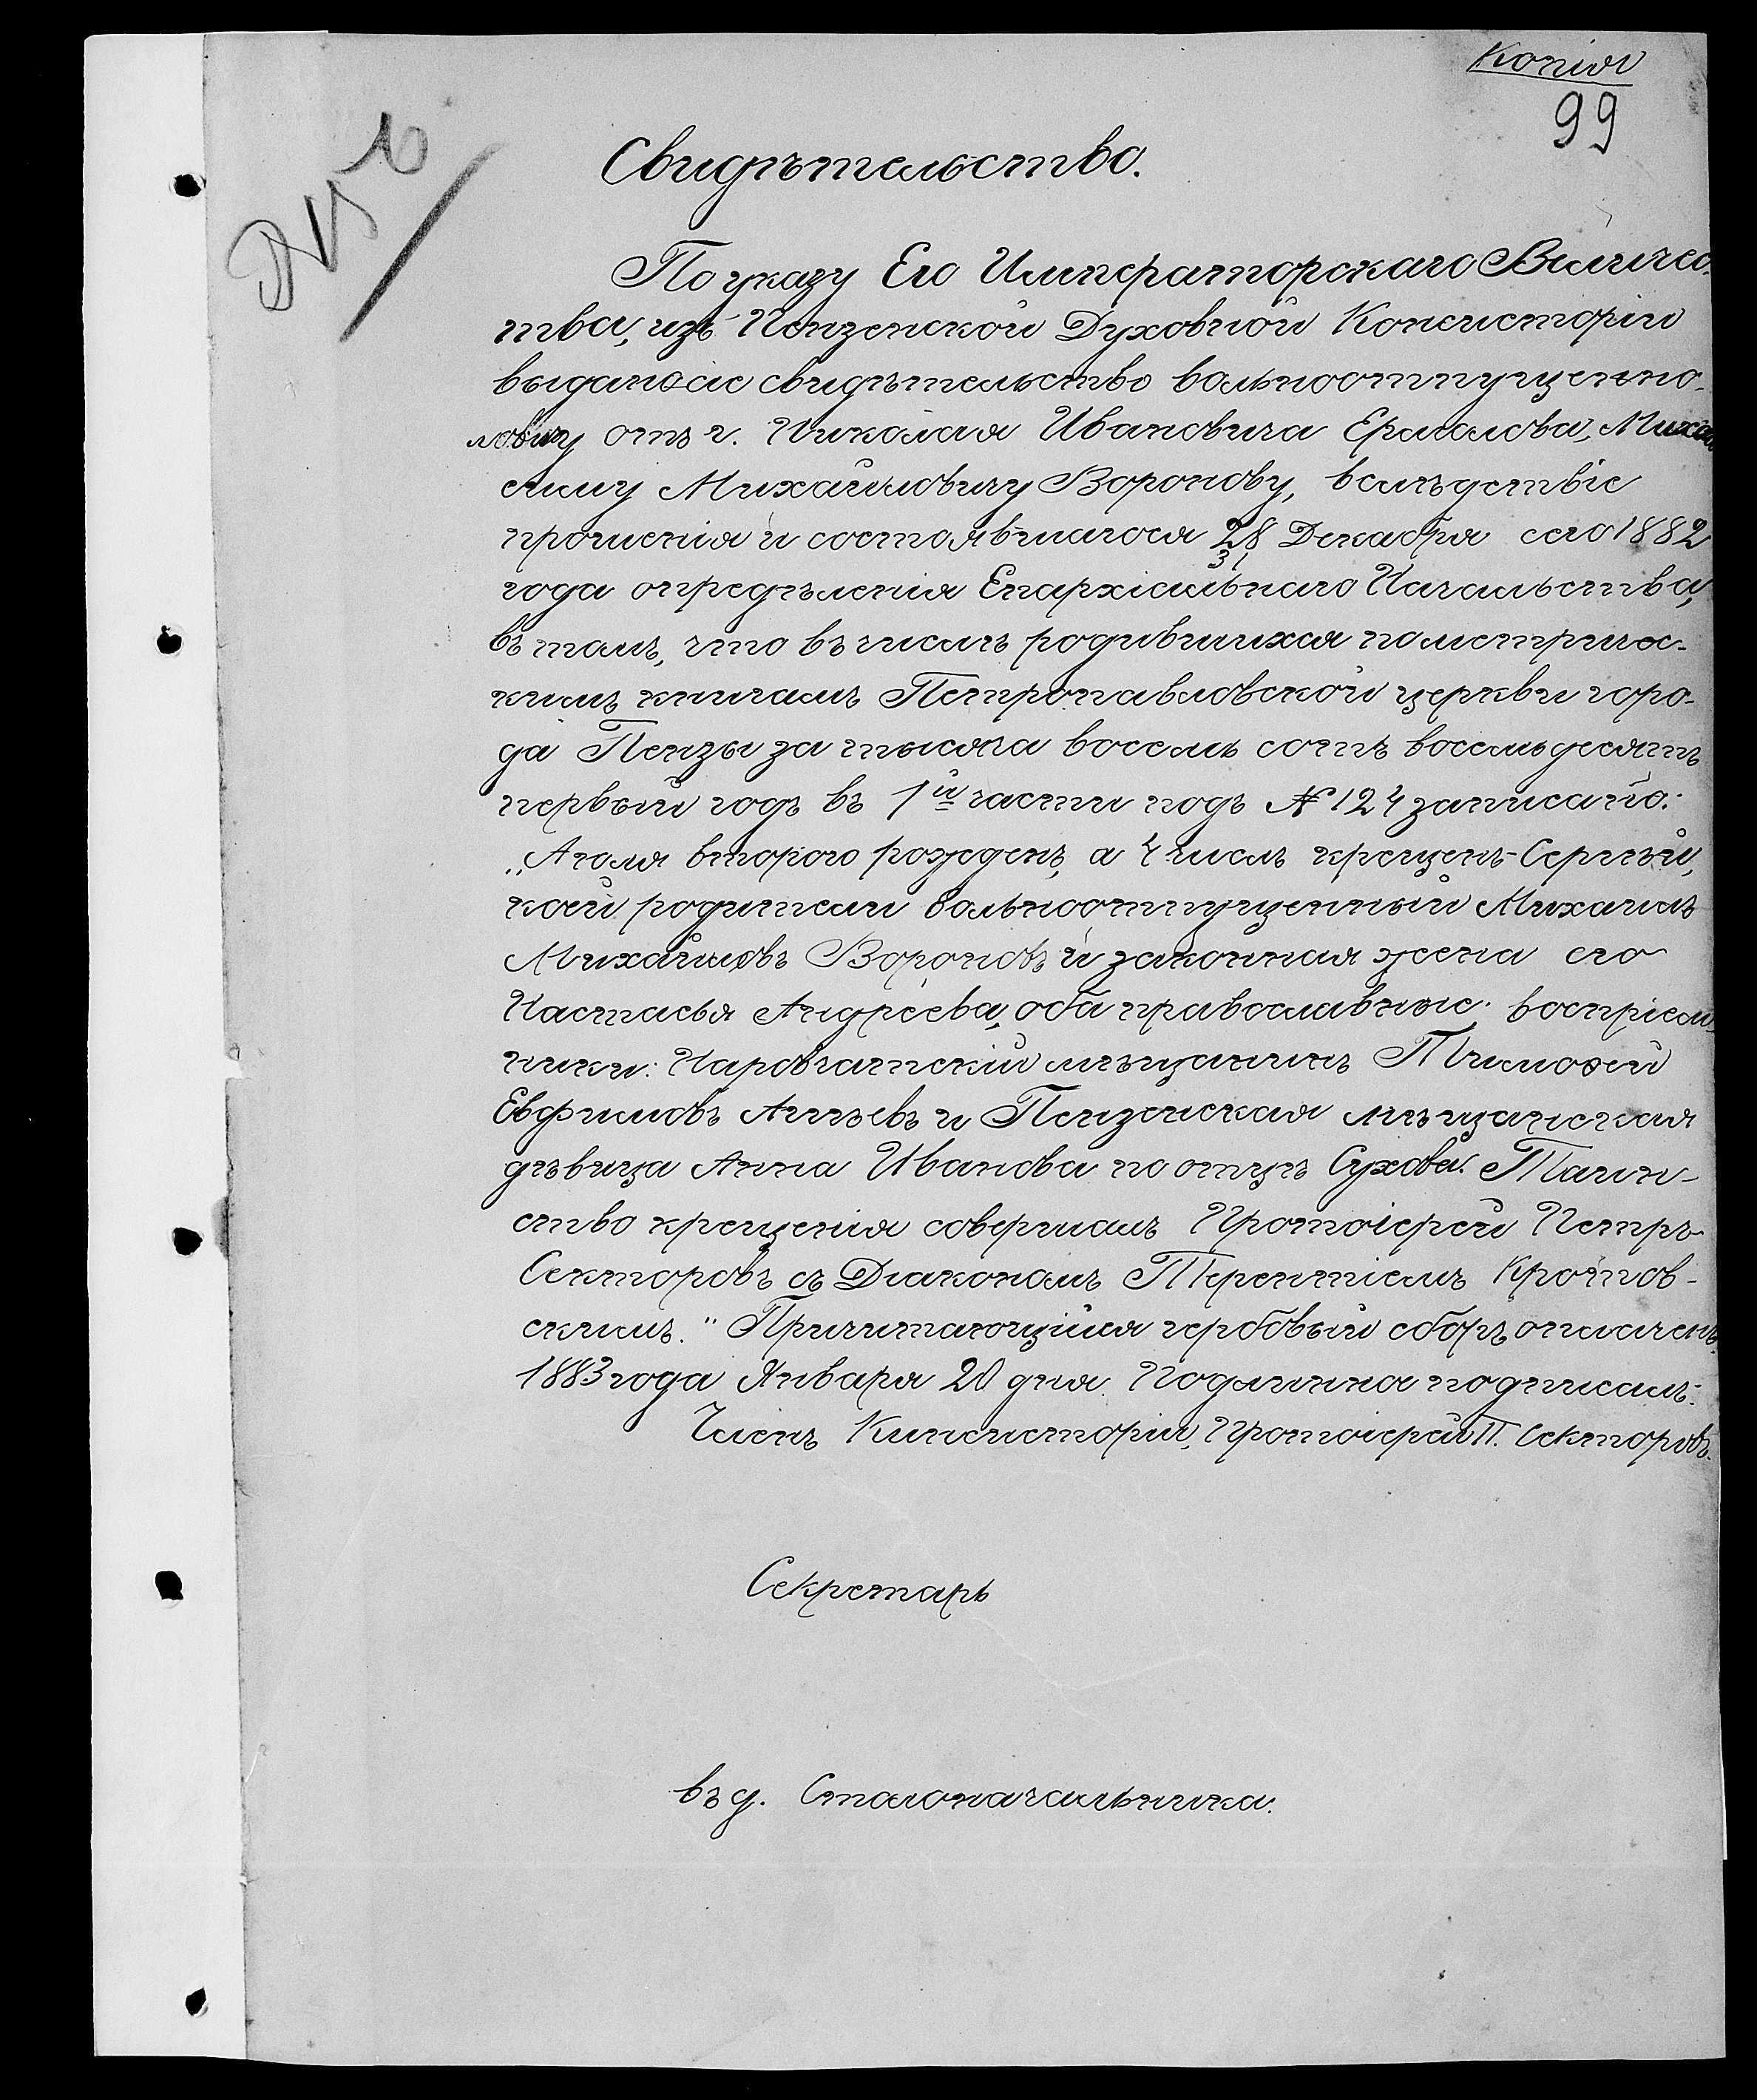 Копія
99
Свидѣтельство.
По указу Его Императорскаго Величес-
тва, изъ Пензенской Духовной Консисторіи
выдано сіе свидѣтельство вольноотпущенно-
му отъ г. Николая Ивановича Ермолова, Миха
илу Михайловичу Воронову, вслѣдствіе
прошенія и состоявшагося 28/31 Декабря сего 1882
года опредѣленія Епархіальнаго Начальства,
въ томъ, что въ числѣ родившихся по метричес-
кимъ книгамъ Петропавловской церкви горо-
да Пензы за тысяча восемь сотъ восемьдесятъ
первый годъ въ 1й части подъ № 124 записано:
„Іюля втораго рожденъ, а 4 числа крещенъ Сергѣй,
коей родители вольноотпущенный Михаилъ
Михайловъ Вороновъ и законная жена его
Настасья Андреева, оба православные. воспріем-
ники: Наровчатскій мѣщанинъ Тимоѳей
Евфимовъ Агѣевъ и Пензенская мѣщанская
дѣвица Анна Иванова по отцѣ Сухова. Таин-
ство крещенія совершалъ Протоіерей Петръ
Секторовъ съ Діакономъ Терентіемъ Кротов-
скимъ." Причитающійся гербовый сборъ оплаченъ.
1883 года Января 20 дня. Подлинно подписалъ:
Членъ Консисторіи, Протоіерей П. Секторовъ.
Секретарь
въ д. Столоначальника.